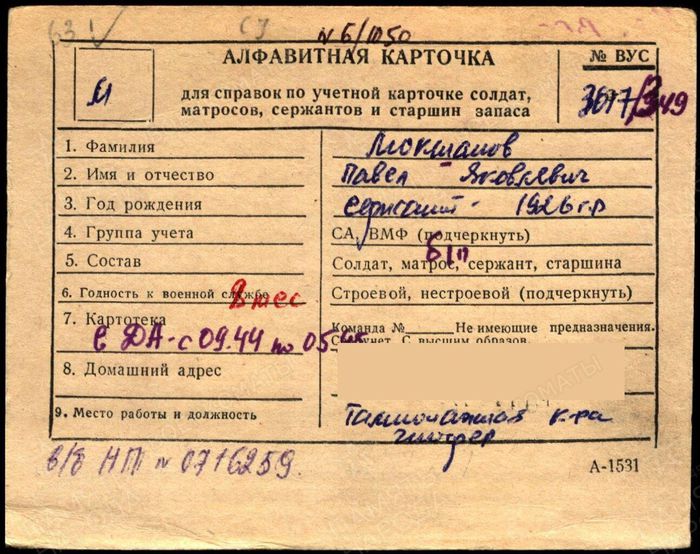 631 СУ
№ 6/1150
АЛФАВИТНАЯ КАРТОЧКА
№ ВУС
М
для справок по учетной карточке солдат,
матросов, сержантов и старшин запаса
1. Фамилия
Мокшанов
2. Имя и отчество Павел Яковлевич
3. Год рождения Сержант - 1926 г.р
4. Группа учета СА, ВМФ (подчеркнуть)
б/п
5. Состав Солдат, матрос, сержант, старшина
6. Годность к военной службе Строевой, нестроевой (подчеркнуть)
7. Картотека Команда № Не имеющие предназначения.
в ДА - с 09.44 по 05
С высшим образов.
8. Домашний адрес
9. Место работы и должность
к-ра
шофер
в/б НП № 0716259.
А-1531